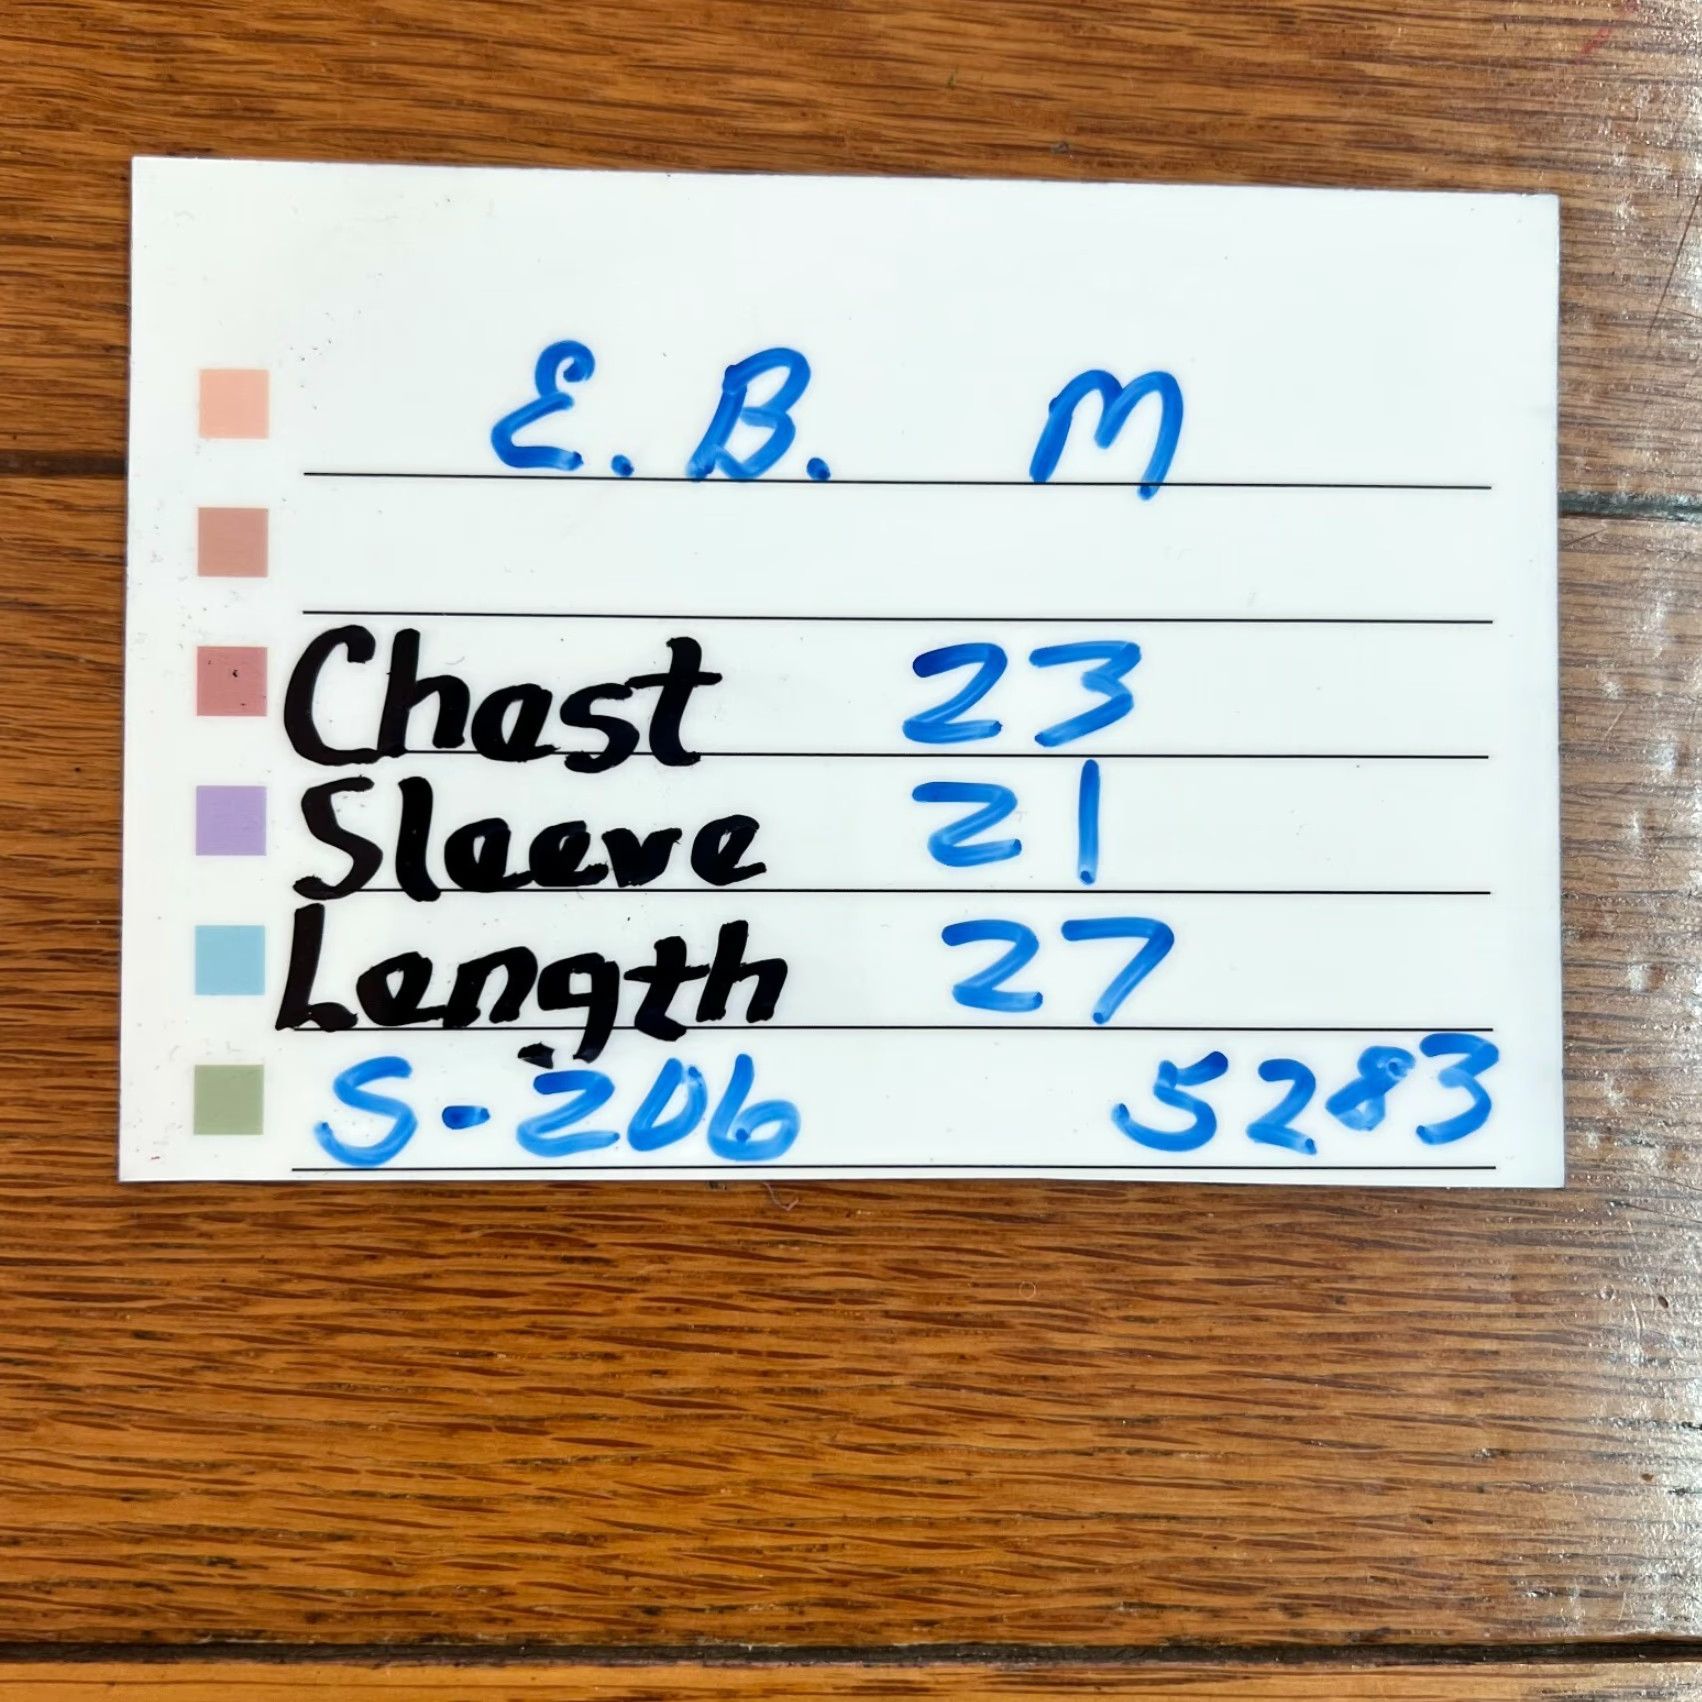 E. B. M
Chest 23
Sleeve 21
Length 27
S-206 5283